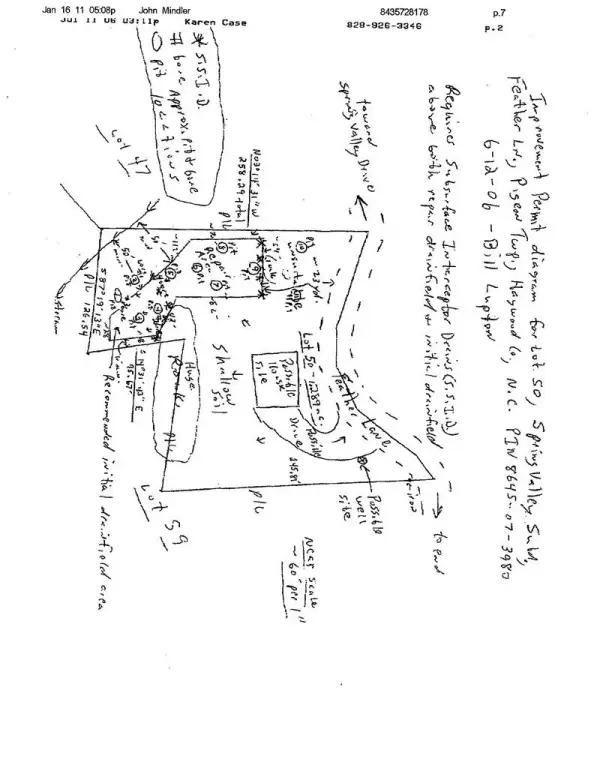 Jan 16 11 05:08p John Mindler 8435728178 p.7
Jul 11 06 03:11p Karen Case 828-926-3346 p.2
Improvement Permit diagram for Lot 50, Spring Valley Sub,
Feather Ln, Pigeon Twp, Haywood Co, N.C. PIN 8645-07-3980
6-12-06 - Bill Lupton
Requires Subsurface Interceptor Drains (S.S.I.D.)
above both repair drainfield & initial drainfield
* S.S.I.D.
# bore Approx. pit & bore
O pit locations
toward
Spring Valley Drive
to end
Lot 47
N 03°14'31" W
258.29 total
P/L
Repair
Area
Feather Lane
Lot 50 - 1.289 ac.
Possible
House
Site
Possible
Drive
245.85'
Possible
well
site
Shallow
Soil
Huge
Rocks
P/L
P/L
S 87°19'13" E
P/L 126.54
95.67
stream
Recommended initial drainfield area
Lot 59
Near scale
~ 60' per 1"